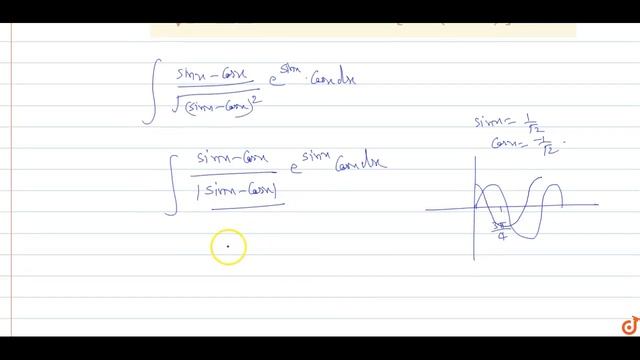 ∫ (sinx - cosx)/√(sinx - cosx)² e^sinx · cosx dx
sinx = 1/√2
cosx = -1/√2 .
∫ (sinx - cosx)/|sinx - cosx| e^sinx cosx dx
3π/4